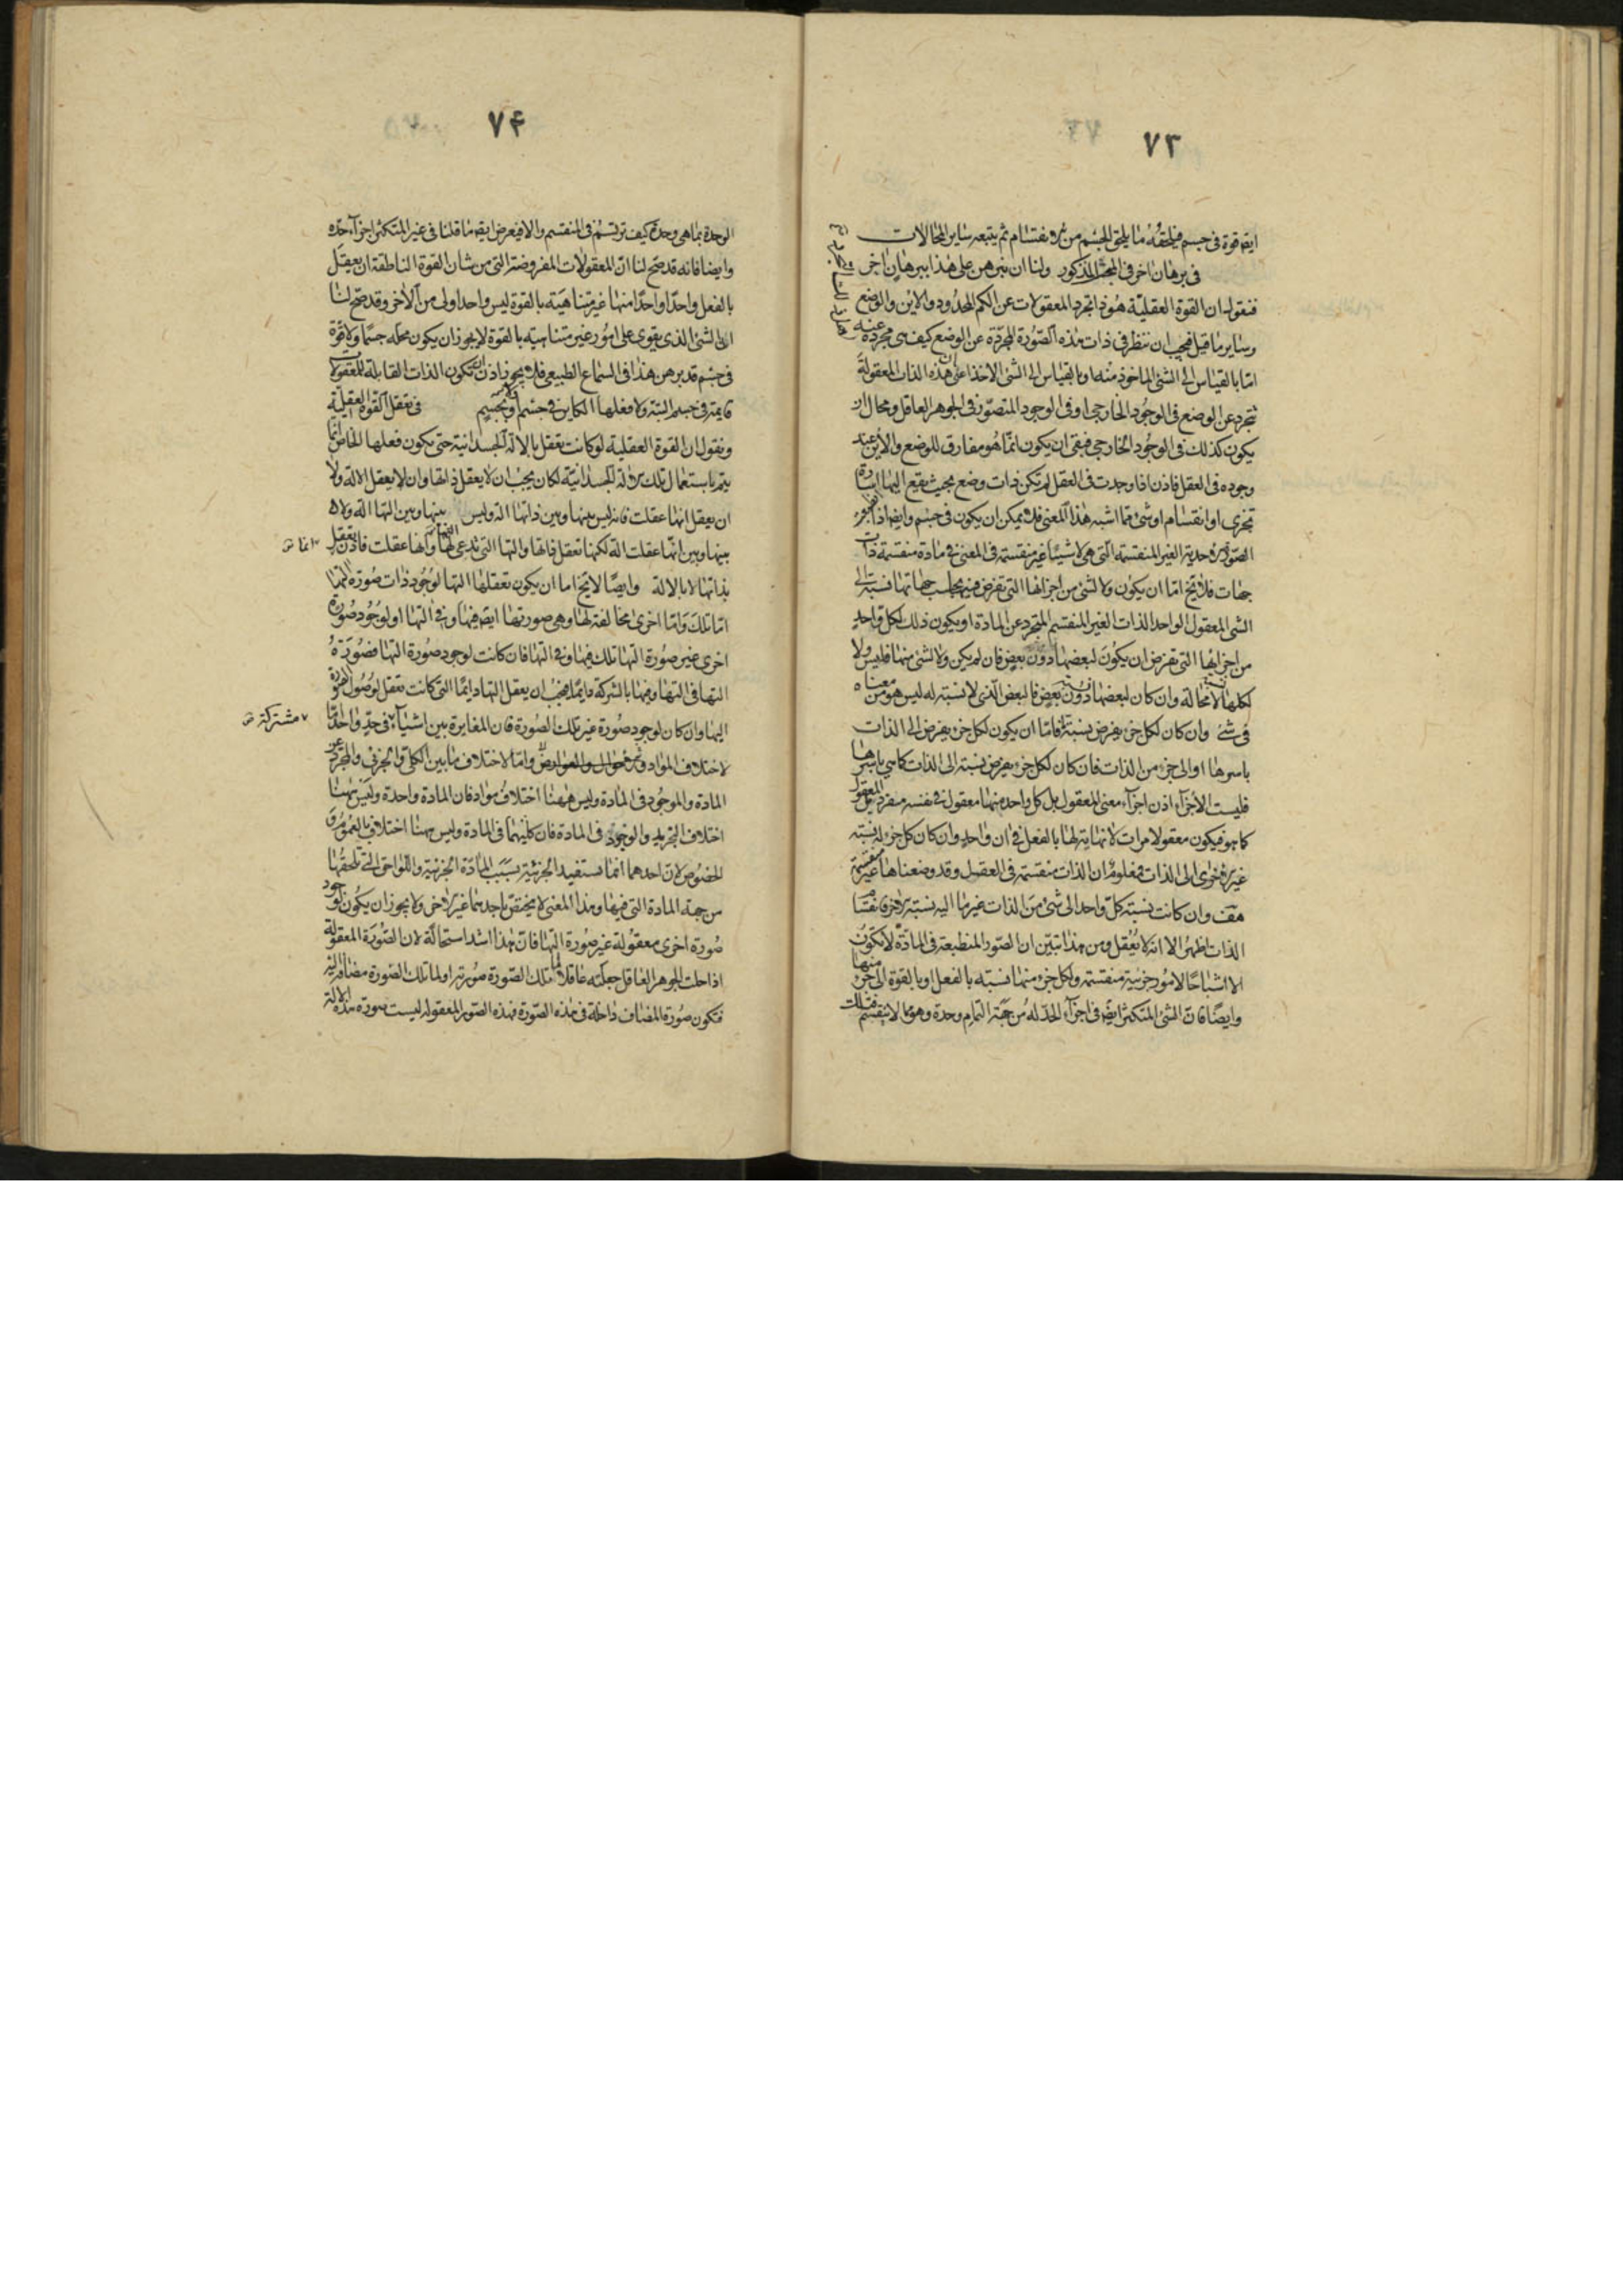 ٧٣
ايضا قوة فى جسم فيلحقه ما يلحق الجسم من الانقسام ثم يتبعه ساير المحالات
فى برهان اخر فى المبحث المذكور ولنا ان نبرهن على هذا ببرهان اخر
فنقول ان القوة العقلية هو ذا تجرد المعقولات عن الكم المحدود والاين والوضع
وساير ما قيل فيجب ان ننظر فى ذات هذه الصورة المجردة عن الوضع كيف هى مجردة عنه
اما بالقياس الى الشئ الماخوذ منه او بالقياس الى الشئ الاخذ اعنى ان هذه الذات المعقولة
تتجرد عن الوضع فى الوجود الخارجى او فى الوجود المتصور فى الجوهر العاقل ومحال ان
يكون كذلك فى الوجود الخارجى فبقى ان يكون انما هو مفارق للوضع والاين عند
وجوده فى العقل فاذن اذا وجدت فى العقل لم تكن ذات وضع بحيث يقع اليها اشارة
تجزى او انقسام او شئ مما اشبه هذا المعنى فلا يمكن ان يكون فى جسم وايضا اذا
الصورة الاحدية الغير المنقسمة التى هى لاشياء غير منقسمة فى المعنى فى مادة منقسمة ذات
جهات فلا يخ اما ان يكون ولا لشئ من اجزائها التى تفرض فيه بحسب جهاتها نسبة الى
الشئ المعقول الواحد الذات الغير المنقسم المتجرد عن المادة او يكون ذلك لكل واحد
من اجزائها التى تفرض ان يكون لبعضها دون بعض فان لم يكن ولا لشئ منها فليس ولا
لكلها لا محالة وان كان لبعضها دون بعض فالبعض الذى لا نسبة له ليس هو من معناه
فى شئ وان كان لكل جزء يفرض نسبة فاما ان يكون لكل جزء يفرض الى الذات
باسرها او الى جزء من الذات فان كان لكل جزء يفرض نسبة الى الذات كما هى باسرها
فليست الاجزاء اذن اجزاء معنى المعقول بل كل واحد منها معقول فى نفسه منفردا بل المعقول
كما هو فيكون معقولا مرات لا نهاية لها بالفعل فى ان واحد وان كان كل جزء له نسبة
غير الاخرى الى الذات فمعلوم ان الذات منقسمة فى العقل وقد وضعناها غير منقسمة
هف وان كانت نسبة كل واحد الى شئ من الذات غير ما اليه نسبة الاخر فانقسام
الذات اظهر الا انه لا يعقل ومن هذا تبين ان الصور المنطبعة فى المادة لا تكون
الا اشباحا لامور جزئية منقسمة ولكل جزء منها نسبة بالفعل او بالقوة الى جزء منها
وايضا فان الشئ المتكثر ايضا فى اجزاء الحد له من جهة التمام وحدة وهو مما لا ينقسم فتلك
٧۴
الوحدة بما هى وحدة كيف ترتسم فى المنقسم والا فيعرض ايضا ما قلنا فى غير المتكثر اجزاء حده
وايضا فانه قد صح لنا ان المعقولات المفروضة التى من شان القوة الناطقة ان يعقل
بالفعل واحدا واحدا منها غير متناهية بالقوة ليس واحد اولى من الاخر وقد صح لنا
ان الشئ الذى يقوى على امور غير متناهية بالقوة لا يجوز ان يكون محله جسما ولا قوة
فى جسم قد برهن هذا فى السماع الطبيعى فلا يجوز اذن ان تكون الذات القابلة للمعقولات
قايمة فى جسم البتة ولا فعلها الكاين فى جسم او بجسم فى تعقل القوة العقلية
ونقول ان القوة العقلية لو كانت تعقل بالالة الجسدانية حتى يكون فعلها الخاص انما
يتم باستعمال تلك الالة الجسدانية لكان يجب ان لا يعقل ذاتها وان لا يعقل الالة ولا
ان يعقل انها عقلت فانه ليس بينها وبين ذاتها الة وليس بينها وبين التها الة ولا
بينها وبين انها عقلت الة لكنها تعقل ذاتها والتها التى تدعى لها وانها عقلت فاذن يعقل
انما
بذاتها لا بالالة وايضا لا يخ اما ان يكون تعقلها التها لوجود ذات صورة التها
اما تلك واما اخرى مخالفة لها وهى صورتها ايضا فيها وفى التها او لوجود صورة
اخرى غير صورة التها تلك فيها وفى التها فان كانت لوجود صورة التها فصورة
التها فى التها وفيها بالشركة دايما فيجب ان يعقل التها دايما التى كانت تعقل لوصول الصورة
اليها وان كان لوجود صورة غير تلك الصورة فان المغايرة بين اشياء فى حد واحد اما
مشتركة
لاختلاف المواد والاحوال والعوارض واما لاختلاف ما بين الكلى والجزئى والمجرد عن
المادة والموجود فى المادة وليس ههنا اختلاف مواد فان المادة واحدة وليس ههنا
اختلاف التجريد والوجود فى المادة فان كليهما فى المادة وليس ههنا اختلاف بالعموم و
الخصوص لان احدهما انما يستفيد الجزئية بسبب المادة الجزئية واللواحق التى تلحقها
من جهة المادة التى فيها وهذا المعنى لا يختص باحدهما غير الاخر ولا يجوز ان يكون لوجود
صورة اخرى معقولة غير صورة التها فان هذا اشد استحالة لان الصورة المعقولة
اذا حلت الجوهر العاقل جعلته عاقلا لما تلك الصورة صورته او لما تلك الصورة مضافة اليه
فتكون صورة المضاف داخلة فى هذه الصورة فهذه الصور المعقولة ليست صورة هذه الالة